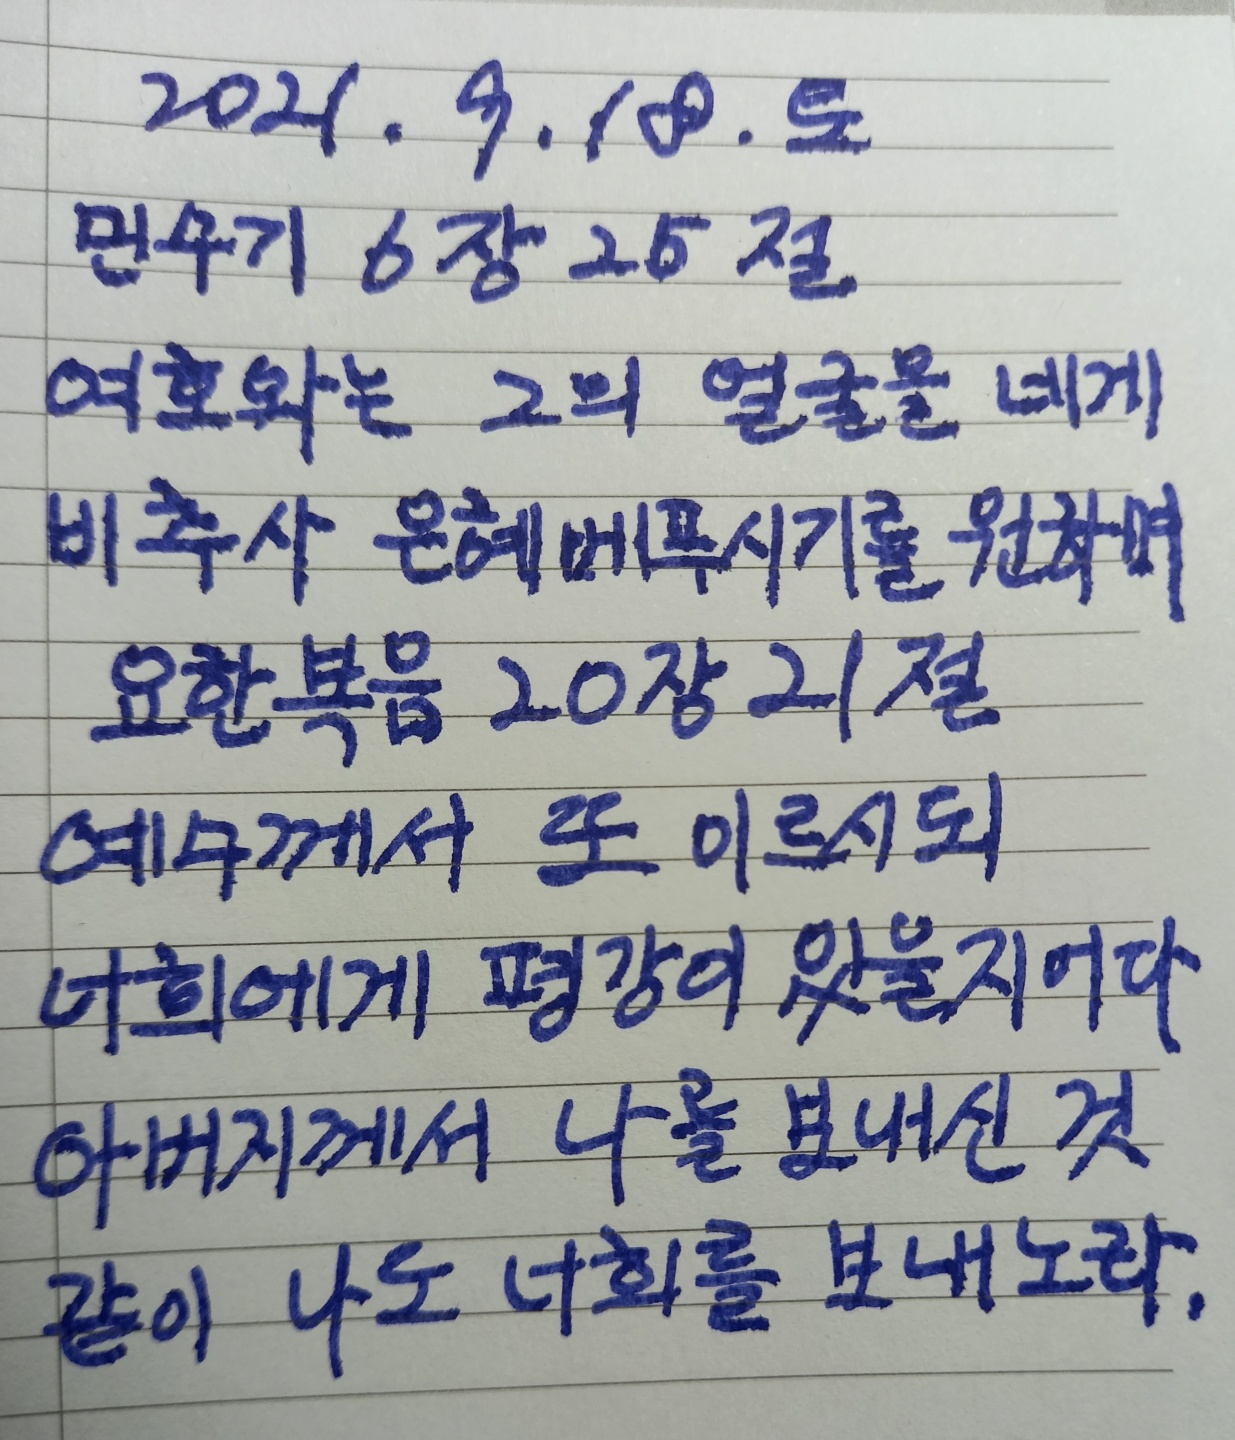 2021. 9. 18. 토
민수기 6장 25절
여호와는 그의 얼굴을 네게
비추사 은혜베푸시기를 원하며
요한복음 20장 21절
예수께서 또 이르시되
너희에게 평강이 있을지어다
아버지께서 나를 보내신 것
같이 나도 너희를 보내노라.